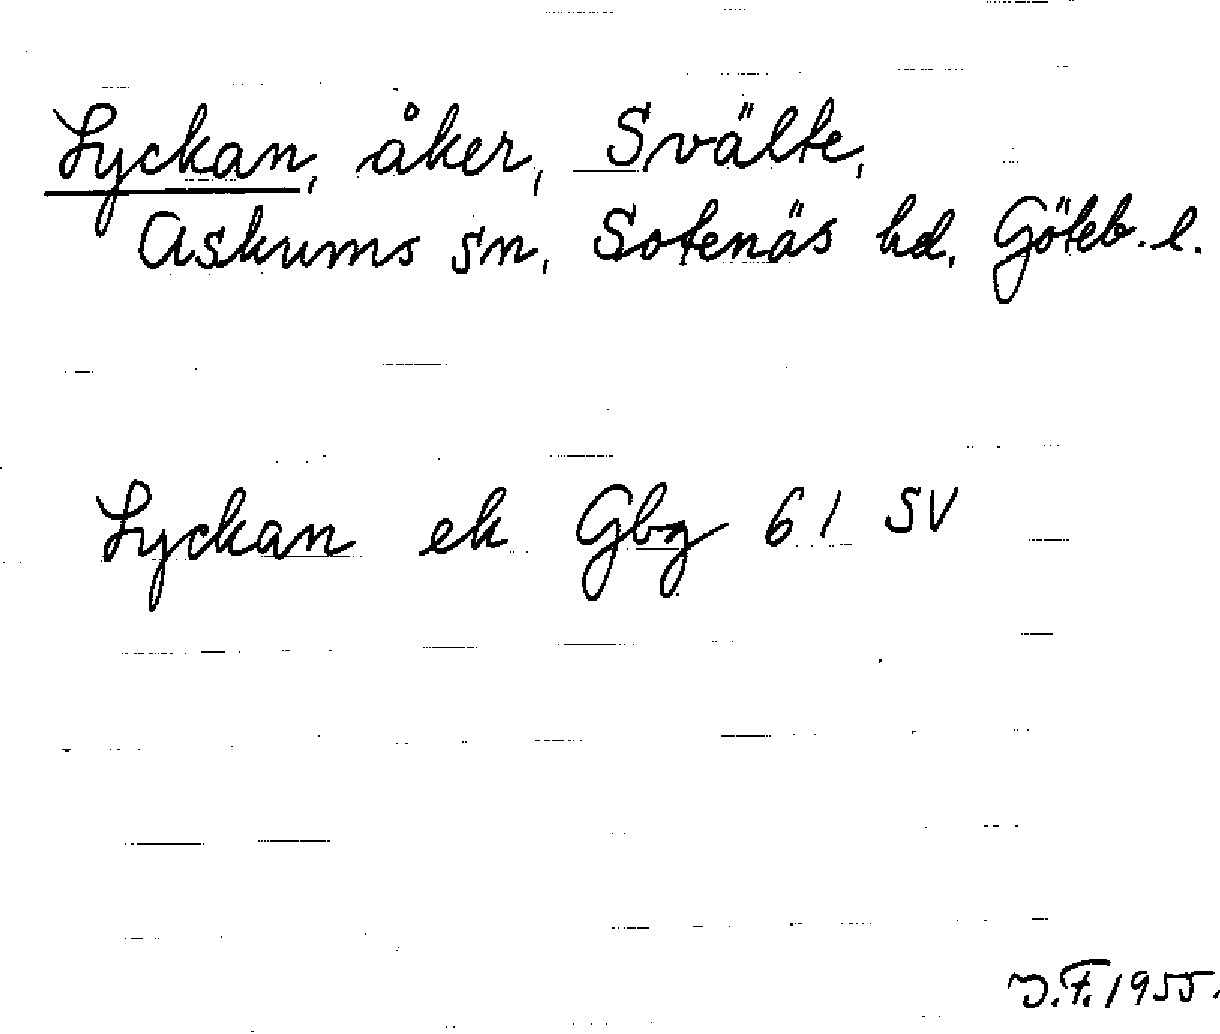 Lyckan, åker, Svälte,
Askums sn, Sotenäs hd, Göteb. l.
Lyckan ek Gbg 61 SV
J.F. 1955.